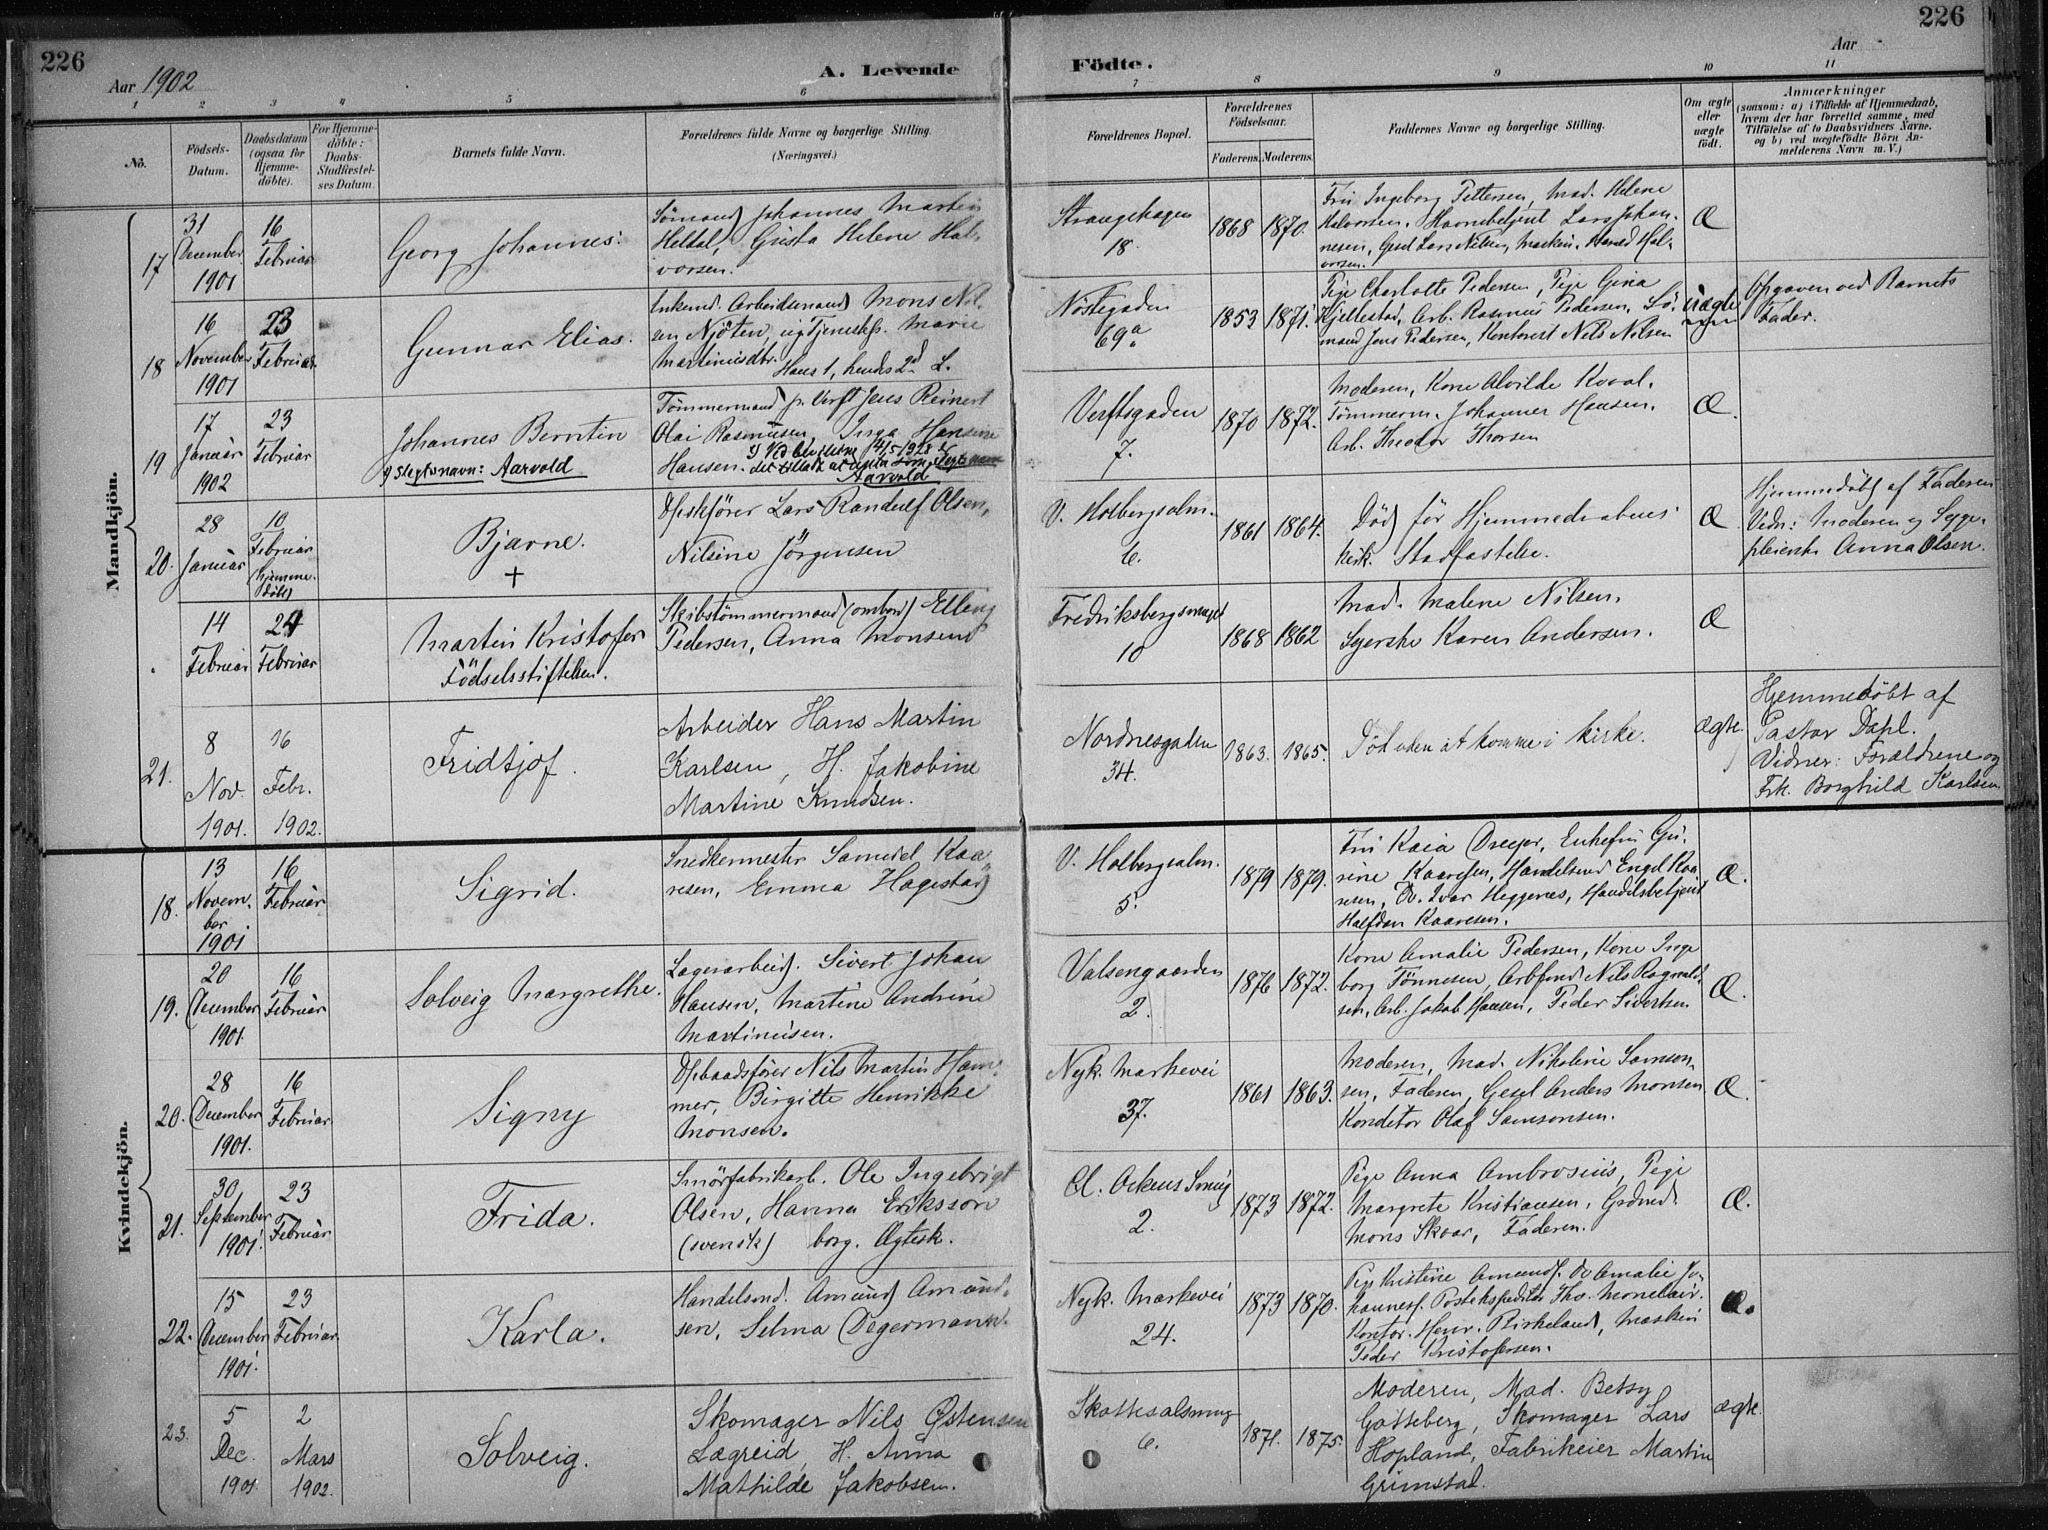 226
226
Aar 1902
A. Levende
Födte.
Aar
1 2 3 4 5 6 7 8 9 10 11
No.
Födsels-
Datum.
Daabsdatum
(ogsaa for
Hjemme-
döbte).
For Hjemme-
döbte:
Daabs-
Stadfæstel-
ses Datum.
Barnets fulde Navn.
Forældrenes fulde Navne og borgerlige Stilling.
(Næringsvei.)
Forældrenes Bopæl.
Forældrenes
Födselsaar.
Faderens. Moderens.
Faddernes Navne og borgerlige Stilling.
Om ægte
eller
uægte
födt.
Anmærkninger
(saasom: a) i Tilfælde af Hjemmedaab,
hvem der har forrettet samme, med
Tilföielse af to Daabsvidners Navne,
og b) ved uægtefödte Börn An-
melderens Navn m. V.)
Mandkjön.
17
31
December
1901
16
Februar
Georg Johannes.
Sömand Johannes Martin
Heldal, Gusta Helene Hal-
vorsen.
Strangehagen
18.
1868
1870.
Fru Ingeborg Pettersen, Mad. Helene
Halvorsen, Havnebetjent Lars Johan-
nesen, Gsel Lars Nilsen, Maskin.
vorsen.
Æ
18
16
November
1901
23
Februar
Gunnar Elias.
Enkemd. Arbeidsmand Mons Nil-
sen Njöten, ug Tjenestp. Marie
Martinusdtr.
Hans 1, hendes 2d L.
Nöstegaden
69a
1853
1871.
Pige Charlotte Pedersen, Pige Gina
Kjellestad, Arb. Rasmus Pedersen, Sö-
mand Jens Pedersen, Kontorist Nils Nilsen
uægte
Opgaven ved Barnets
Fader.
19
17
Januar
1902
23
Februar
Johannes Berntin
Slegtsnavn: Aarvold
Tömmermand p. Verft Jens Reinert
Olai Rasmussen, Inga Hansine
Hansen.
Aarvold
Verftsgaden
7.
1870
1872.
Moderen, Kone Alvilde Kvval.
Tömmerm. Johannes Hansen.
Arb. Theodor Thorsen
Æ.
20.
28
Januar
10
Februar
(hjemme-
döbt)
Bjarne.
+
Opskjörer Lars Randulf Olsen,
Nilsine Jörgensen
V. Holbergsalm.
6.
1861
1864.
Död för Hjemmedaabens
kirk. Stadfæstelse.
Æ
Hjemmedöbt af Faderen
Vidn: Moderen og Syge-
pleiersk Anna Olsen.
14
Februar
24
Februar
Martin Kristofer
Födselsstiftelsen.
Skibstömmermand (ombord) Elling
Pedersen, Anna Monsen
Fredriksbergsmuget
10
1868
1862
Mad. Malene Nilsen.
Syerske Karen Andersen.
Æ
21.
8
Nov.
1901.
16
Febr.
1902.
Fridtjof.
Arbeider Hans Martin
Karlsen, H. Jakobine
Martine Knudsen.
Nordnesgaden
34.
1863.
1865.
Död uden at komme i kirke.
ægte.
Hjemmedöbt af
Pastor Dahl.
Vidner: Forældrene og
Frk. Borghild Karlsen.
Kvindekjön.
18.
13
Novem-
ber
1901
16
Februar
Sigrid.
Snedkermester Samuel Kaa-
resen, Emma Hagestad
V. Holbergsalm.
5.
1879
1879.
Fru Kaia Dreyer, Enkefru Gu-
rine Kaaresen, Handelsmd Engel Kaa-
resen, Do. Ivar Heggenes, Handelsbetjent
Halfdan Kaaresen.
Æ.
19.
20
December
1901.
16
Februar
Solveig Margrethe.
Lagerarbeid. Sivert Johan
Hansen, Martine Andrine
Martinusen.
Valsengaarden
2.
1876
1872.
Kone Amalie Pedersen, Kone Inge
borg Tönnesen, Arbfmd. Nils Ragvald-
sen, Arb. Jakob Hansen, Peder Sivertsen
Æ.
20.
28
December
1901.
16
Februar
Signy
Opbaadsförer Nils Martin Ham-
mer, Birgitte Henrikke
Monsen.
Nyk. Markevei
37.
1861
1863.
Moderen, Mad. Nikoline Samson-
sen, Faderen, Gesel Anders Monsen
Konditor Olaf Samsonsen.
Æ.
21.
30
September
1901.
23
Februar
Frida.
Smörfabrikarb. Ole Ingebrigt
Olsen, Hanna Eriksson
(svensk) borg. Ægtesk.
Cl. Ockens Smug
2.
1873
1872.
Pige Anna Ambrosius, Pige
Margrete Kristiansen, Grdmd.
Mons Skaar, Faderen.
Æ.
22.
15
December
1901.
23
Februar
Karla.
Handelsmd. Amund Amund-
sen, Selma Degermann.
Nyk. Markevei
24.
1873
1870.
Pige Kristine Amunds. Do Amalie Jo-
hannes. Postekspeditör Ths. Monclair.
Kontor. Henr. Birkeland, Maskin
Peder Kristofersen.
Æ.
23.
5
Dec.
1901
2
Mars
1902.
Solveig.
Skomager Nils Østensen
Lægreid, H. Anna
Mathilde Jakobsen.
Skottesalsmug
6.
1871.
1875.
Moderen, Mad. Betsy
Gotteberg, Skomager Lars
Hopland, Fabrikeier Martin
Grimstad.
ægte.